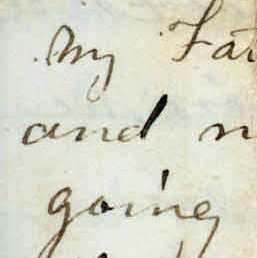 my Fat
and n
going